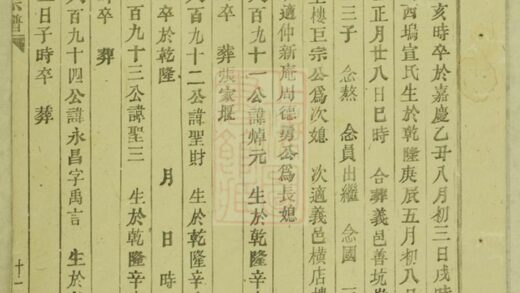 亥時卒於嘉慶乙丑八月初三日戌時
酉塢宣氏生於乾隆庚辰五月初八日
正月廿八日巳時 合葬義邑善坑
三子 念熬 念員出繼 念國 三
上樓巨宗公爲次媳 次適義邑橫店樓
適仲新庵周德勇公爲長媳
百九十一公諱焯元 生於乾隆
卒 葬張家堰
百九十二公諱聖財 生於乾隆辛
卒於乾隆 月 日 時
百九十三公諱聖三 生於乾隆辛
時卒 葬
百九十四公諱永昌字禹言 生於
日子時卒 葬
宗譜
十一